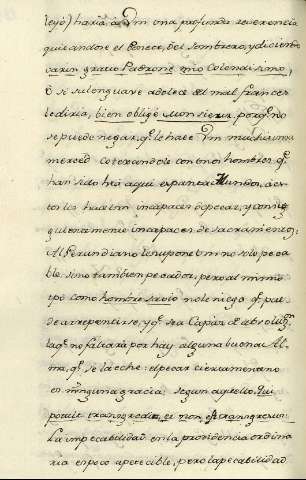 leyò) haria a Vm una profunda reverencia
quitandose el bonete, del sombrero, y diciendo
Padrone mio Colendisimo,
O si su lengua adolece del mal frances
le diria, bien obligè monsieur, porq.e no
se puede negar, q.e le hace Vm muchissima
merced cotexandole con otros hombres q.e
han sido hta aqui
incapaces de pecar, y consig
guientemente incapaces de sacramentos;
Al Ferundiano le supone Vm no solo peca
ble, sino tambien pecador, pero al mismo
tpo como hombre sabio no le niega q.e pue
de arrepentirse, y q.e sea capàz de absoluc.n
la q.e no faltarà por hay alguna buena Al
ma, q.e se la eche: el pecar ciertamente no
es ninguna gracia; segun aquello, Qui
potuit transgredi, et non est transgressus:
La impecabilidad en la providencia ordina
ria en poco apetecible, pero la pecabilidad